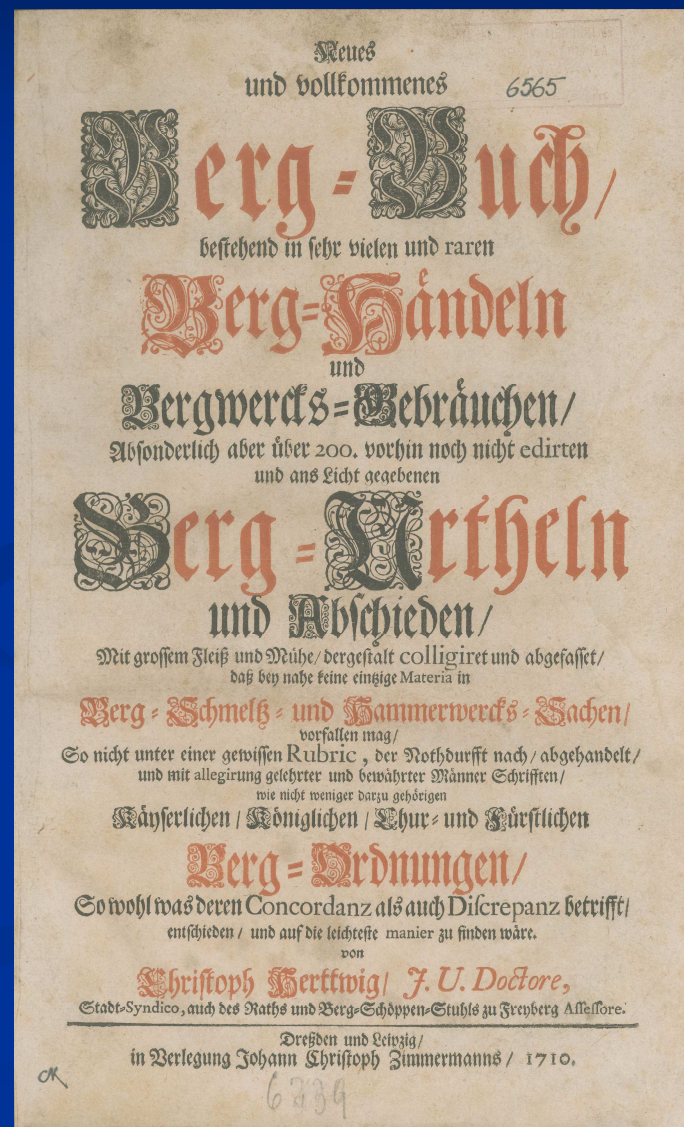 Neues
und vollkommenes
6565
Berg-Buch/
bestehend in sehr vielen und raren
Berg-Händeln
und
Bergwercks-Gebräuchen/
Absonderlich aber über 200. vorhin noch nicht edirten
und ans Licht gegebenen
Berg-Urtheln
und Abschieden/
Mit grossem Fleiß und Mühe/ dergestalt colligiret und abgefasset/
daß bey nahe keine eintzige Materia in
Berg-Schmeltz- und Hammerwercks-Sachen/
vorfallen mag/
So nicht unter einer gewissen Rubric, der Nothdurfft nach/ abgehandelt/
und mit allegirung gelehrter und bewährter Männer Schrifften/
wie nicht weniger darzu gehörigen
Käyserlichen/ Königlichen/ Chur- und Fürstlichen
Berg-Ordnungen/
So wohl was deren Concordanz als auch Discrepanz betrifft/
entschieden/ und auf die leichteste manier zu finden wäre.
von
Christoph Herttwig/ J. U. Doctore,
Stadt-Syndico, auch des Raths und Berg-Schöppen-Stuhls zu Freyberg Assessore.
Dreßden und Leipzig/
in Verlegung Johann Christoph Zimmermanns/ 1710.
6339